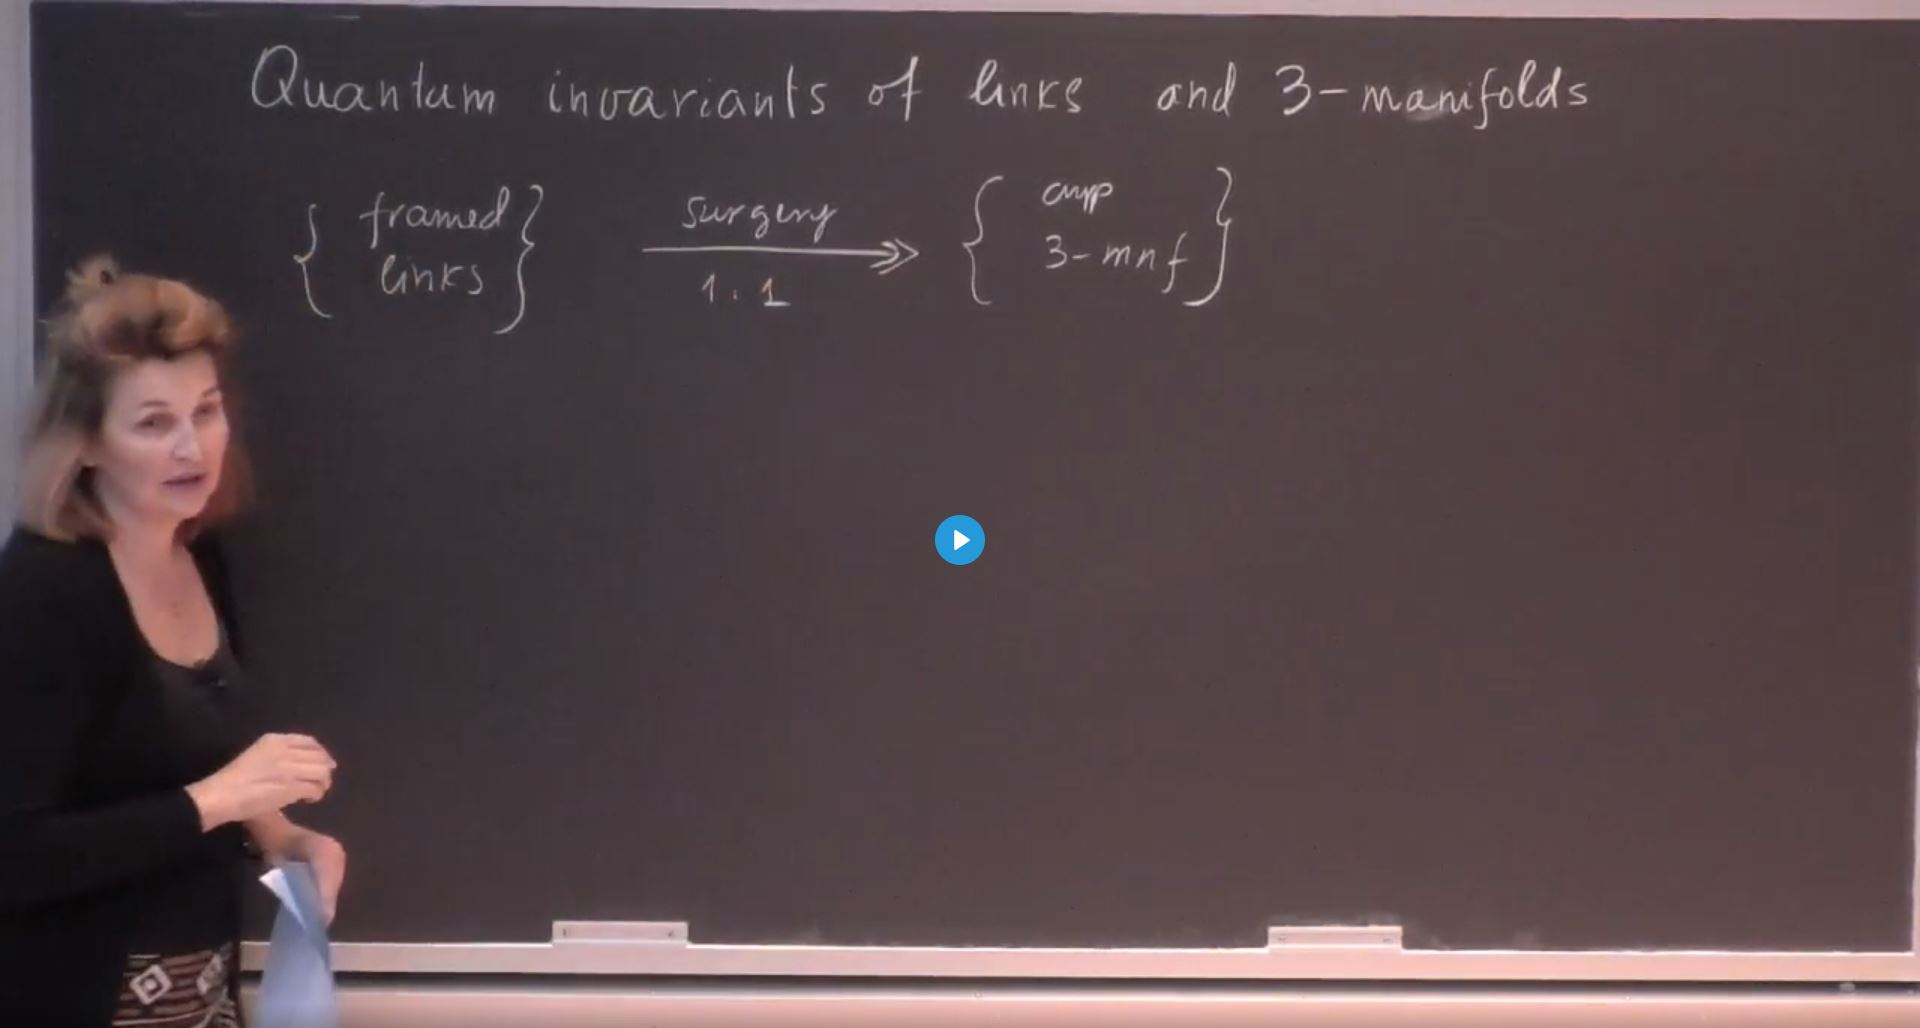 Quantum invariants of links and 3-manifolds
{ framed links } surgery 1.1 { 3-mnf }